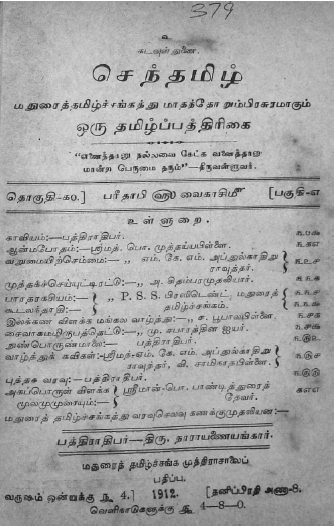 379
உ
கடவுள் துணை.
செந்தமிழ்
மதுரைத்தமிழ்ச்சங்கத்து மாதந்தோறும்பிரசுரமாகும்
ஒரு தமிழ்ப்பத்திரிகை
"எனைத்தானு நல்லவை கேட்க வனைத்தானு
மான்ற பெருமை தரும்"—திருவள்ளுவர்.
தொகுதி-௧௦.] பரிதாபி வைகாசிமீ [பகுதி-௭
உள்ளுறை.
காவியம்:—பத்திராதிபர்.
ஆன்மபோதம்:—ஸ்ரீமத். பொ. முத்தய்யபிள்ளை.
வறுமையிற்செம்மை:— ,, எம். கே. எம். அப்துல்காதிறு
ராவுத்தர்.
முத்தகச்செய்யுட்டிரட்டு:— ,, அ. சிதம்பரமுதலியார்.
பாரதரகசியம்:— ,, P. S. S. பிரஸிடெண்ட், மதுரைத்
கூடலந்தாதி:— தமிழ்ச்சங்கம்.
இலக்கண விளக்க மங்கல வாழ்த்து:— ,, ச. பூபாலபிள்ளை.
,, மு. சபாரத்தின ஐயர்.
நுண்பொருண்மாலை:— பத்திராதிபர்.
வாழ்த்துக் கவிகள்:—ஸ்ரீமத்-எம். கே. எம். அப்துல்காதிறு
ராவுத்தர், வி. சாமிநாதபிள்ளை.
புத்தக வரவு:—பத்திராதிபர்.
அகப்பொருள் விளக்க ஸ்ரீமான்-பொ. பாண்டித்துரைத்
மூலமுமுரையும்:— தேவர்.
மதுரைத் தமிழ்ச்சங்கத்து வரவுசெலவு கணக்குமுதலியன:—
பத்திராதிபர்—திரு. நாராயணையங்கார்.
மதுரைத் தமிழ்ச்சங்க முத்திராசாலைப்
பதிப்பு.
வருஷம் ஒன்றுக்கு ரூ 4.] 1912. [தனிப்பிரதி அணா-8.
வெளிநாடுகளுக்கு ரூ 4—8—0.